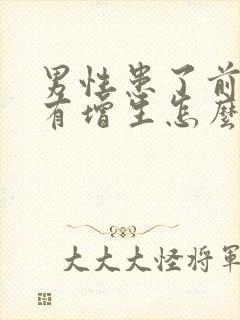 男性患了前
有增生怎麼
大大大怪将軍